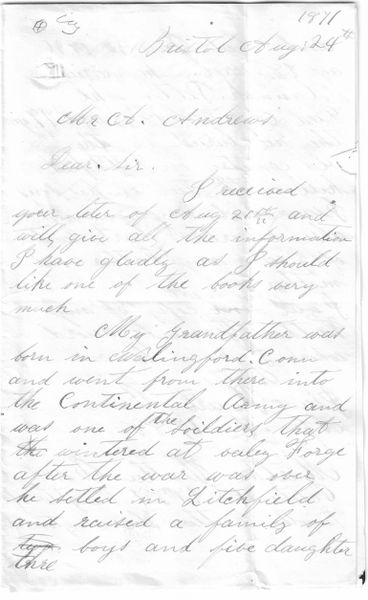 1871
Bristol Aug. 24th
Mr A. Andrews
Dear Sir.
I received
your leter of Aug 21st and
will give all the information
I have gladly as I should
like one of the books very
much
My Grandfather was
born in Walingford. Conn
and went from there into
the Continental Army and
was one of the soildiers that
wintered at valey Forge
after the war was over
he settled in Litchfield
and raised a family of
boys and five daughter
thre